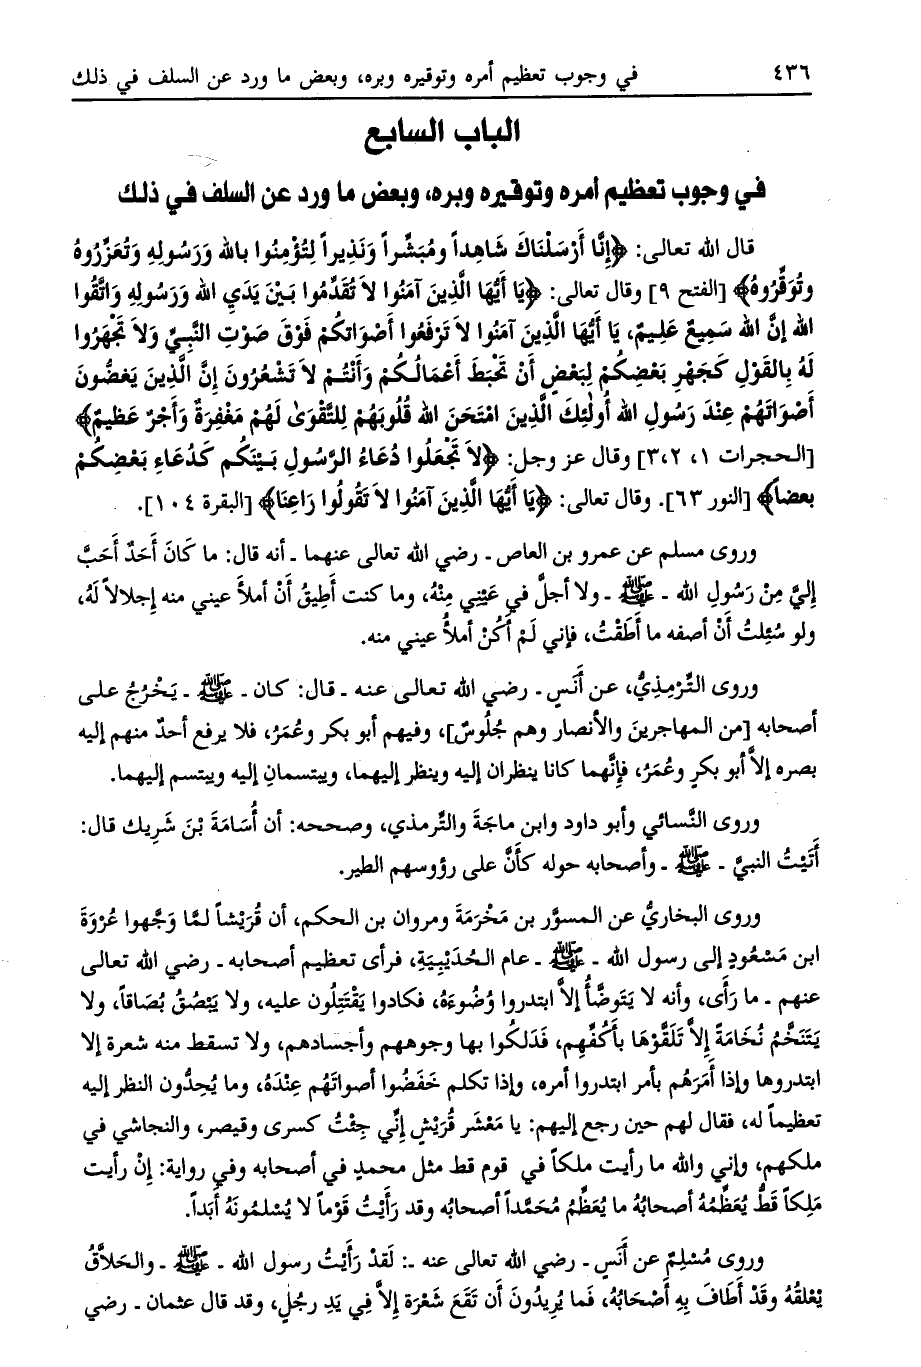 ٤٣٦ في وجوب تعظيم أمره وتوقيره وبره، وبعض ما ورد عن السلف في ذلك
الباب السابع
في وجوب تعظيم أمره وتوقيره وبره، وبعض ما ورد عن السلف في ذلك
قال الله تعالى: ﴿إِنَّا أَرْسَلْنَاكَ شَاهِداً ومُبَشِّراً وَنَذِيراً لِتُؤْمِنُوا بالله وَرَسُولِهِ وَتُعَزِّرُوهُ
وتُوَقِّرُوهُ﴾ [الفتح ٩] وقال تعالى: ﴿يَا أَيُّهَا الَّذِينَ آمَنُوا لاَ تُقَدِّمُوا بَيْنَ يَدَيِ الله وَرَسُولِهِ وَاتَّقُوا
الله إِنَّ الله سَمِيعٌ عَلِيمٌ، يَا أَيُّهَا الَّذِينَ آمَنُوا لاَ تَرْفَعُوا أَصْوَاتَكُمْ فَوْقَ صَوْتِ النَّبِيِّ وَلاَ تَجْهَرُوا
لَهُ بِالقَوْلِ كَجَهْرِ بَعْضِكُمْ لِبَعْضٍ أَنْ تَحْبَطَ أَعْمَالُكُمْ وَأَنْتُمْ لاَ تَشْعُرُونَ إِنَّ الَّذِينَ يَغضُّونَ
أَصْوَاتَهُمْ عِنْدَ رَسُولِ الله أُولَئِكَ الَّذِينَ امْتَحَنَ الله قُلُوبَهُمْ لِلتَّقْوَىٰ لَهُمْ مَغْفِرَةٌ وَأَجْرٌ عَظِيمٌ﴾
[الحجرات ١، ٢،٣] وقال عز وجل: ﴿لاَ تَجْعَلُوا دُعَاءُ الرَّسُولِ بَيْنَكُم كَدُعَاءِ بَعْضِكُمْ
بعضاً﴾ [النور ٦٣]. وقال تعالى: ﴿يَا أَيُّهَا الَّذِينَ آمَنُوا لاَ تَقُولُوا رَاعِنَا﴾ [البقرة ١٠٤].
وروى مسلم عن عمرو بن العاص ـ رضي الله تعالى عنهما ـ أنه قال: ما كَانَ أَحَدٌ أَحَبَّ
إِليَّ مِنْ رَسُولِ الله ـ ﷺ ـ ولا أجلَّ في عَيْنِي مِنْهُ، وما كنت أُطِيقُ أَنْ أملأَ عيني منه إجلالاً لَهُ،
ولو سُئِلتُ أَنْ أصفه ما أَطَقْتُ، فإني لَمْ أَكُنْ أملأُ عيني منه.
وروى التِّرْمِذِيُّ، عن أَنَسٍ ـ رضي الله تعالى عنه ـ قال: كان ـ ﷺ ـ يَخْرُجُ على
أصحابه [من المهاجرينَ والأنصار وهم جُلُوسٌ]، وفيهم أبو بكر وعُمَرُ، فلا يرفع أحدٌ منهم إليه
بصره إلاَّ أبو بكرٍ وعُمَرُ، فإِنَّهما كانا ينظران إليه وينظر إليهما، ويبتسمانِ إليه ويبتسم إليهما.
وروى النَّسائي وأبو داود وابن ماجَةَ والتِّرمذي، وصححه: أن أُسَامَةَ بْنَ شَرِيك قال:
أَتَيْتُ النبيَّ ـ ﷺ ـ وأصحابه حوله كأَنَّ على رؤوسهم الطير.
وروى البخاريُّ عن المسوَّر بن مَخْرَمَةَ ومروان بن الحكم، أن قُرَيْشاً لمَّا وَجَّهوا عُرْوَةَ
ابن مَسْعُودٍ إلى رسول الله ـ ﷺ ـ عام الحُدَيْبِيَةِ، فرأى تعظيم أصحابه ـ رضي الله تعالى
عنهم ـ ما رَأَى، وأنه لا يَتَوضَّأُ إلاَّ ابتدروا وُضُوءَهُ، فكادوا يَقْتَتِلُون عليه، ولا يَبْصُقُ بُصَاقاً، ولا
يَتَنَخَّمُ نُخَامَةً إلاَّ تَلَقَّوْهَا بأَكُفِّهِم، فَدَلَكُوا بها وجوههم وأجسادهم، ولا تسقط منه شعرة إلا
ابتدروها وإذا أَمَرَهُم بأمر ابتدروا أمره، وإذا تكلم خَفَضُوا أصواتَهُم عِنْدَهُ، وما يُحِدُّون النظر إليه
تعظيماً له، فقال لهم حين رجع إليهم: يا مَعْشَر قُرَيْشٍ إِنِّي جِئْتُ كسرى وقيصر، والنجاشي في
ملكهم، وإني والله ما رأيت ملكاً في قوم قط مثل محمدٍ في أصحابه وفي رواية: إنْ رأيت
مَلِكاً قَطُّ يُعَظِّمُهُ أصحابُهُ ما يُعَظِّمُ مُحَمَّداً أصحابُه وقد رَأَيْتُ قَوْماً لا يُسْلمُونَهُ أَبَداً.
وروى مُسْلِمٌ عن أَنَسٍ ـ رضي الله تعالى عنه ـ: لَقدْ رَأَيْتُ رسول الله ـ ﷺ ـ والحَلاَّقُ
يْعْلقُهُ وقَدْ أَطَافَ بِهِ أَصْحَابُهُ، فَما يُرِيدُونَ أَن تَقَعَ شَعْرَة إلاَّ فِي يَدِ رجُلٍ، وقد قال عثمان ـ رضي